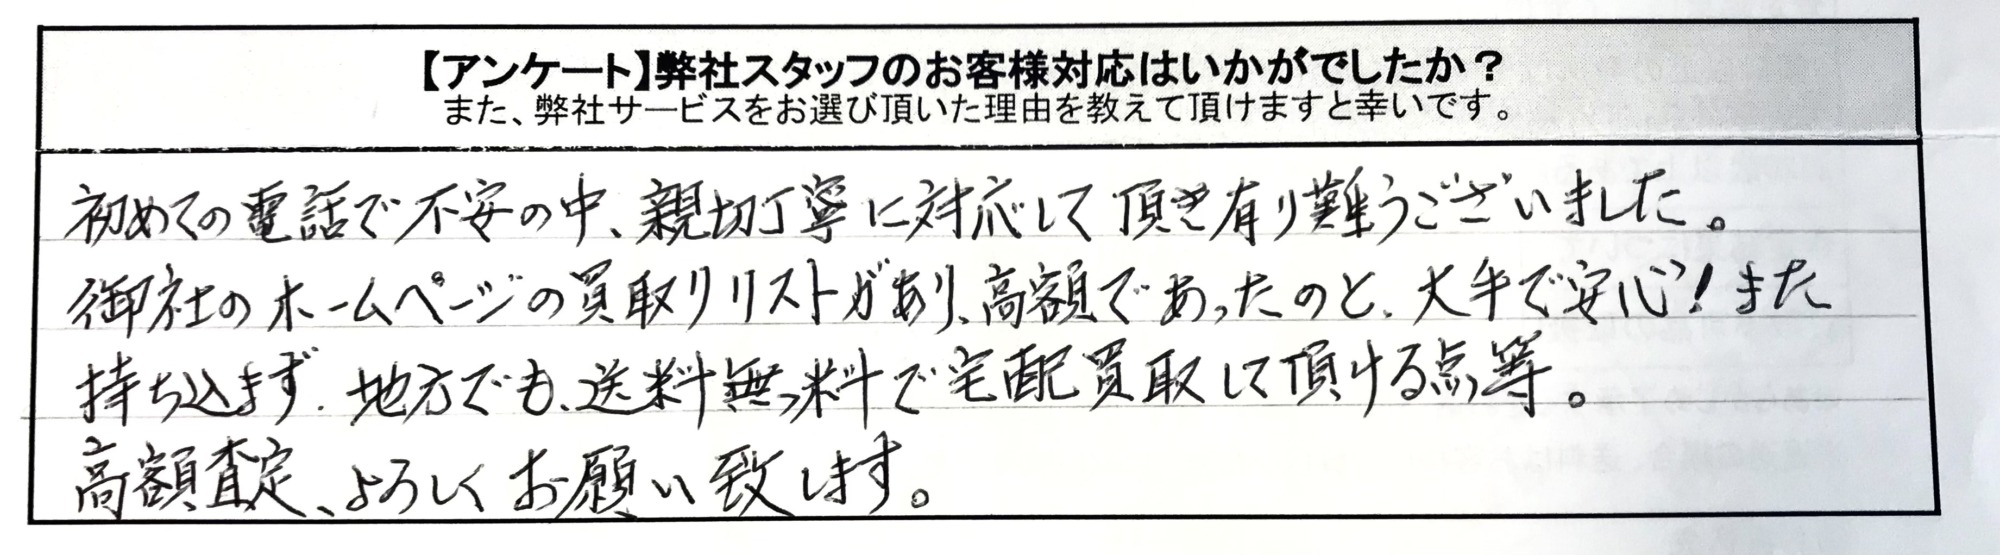 【アンケート】弊社スタッフのお客様対応はいかがでしたか？
また、弊社サービスをお選び頂いた理由を教えて頂けますと幸いです。
初めての電話で不安の中、親切丁寧に対応して頂き有り難うございました。
御社のホームページの買取リリストがあり、高額であったのと、大手で安心！また
持ち込まず、地方でも、送料無料で宅配買取して頂ける点等。
高額査定、よろしくお願い致します。